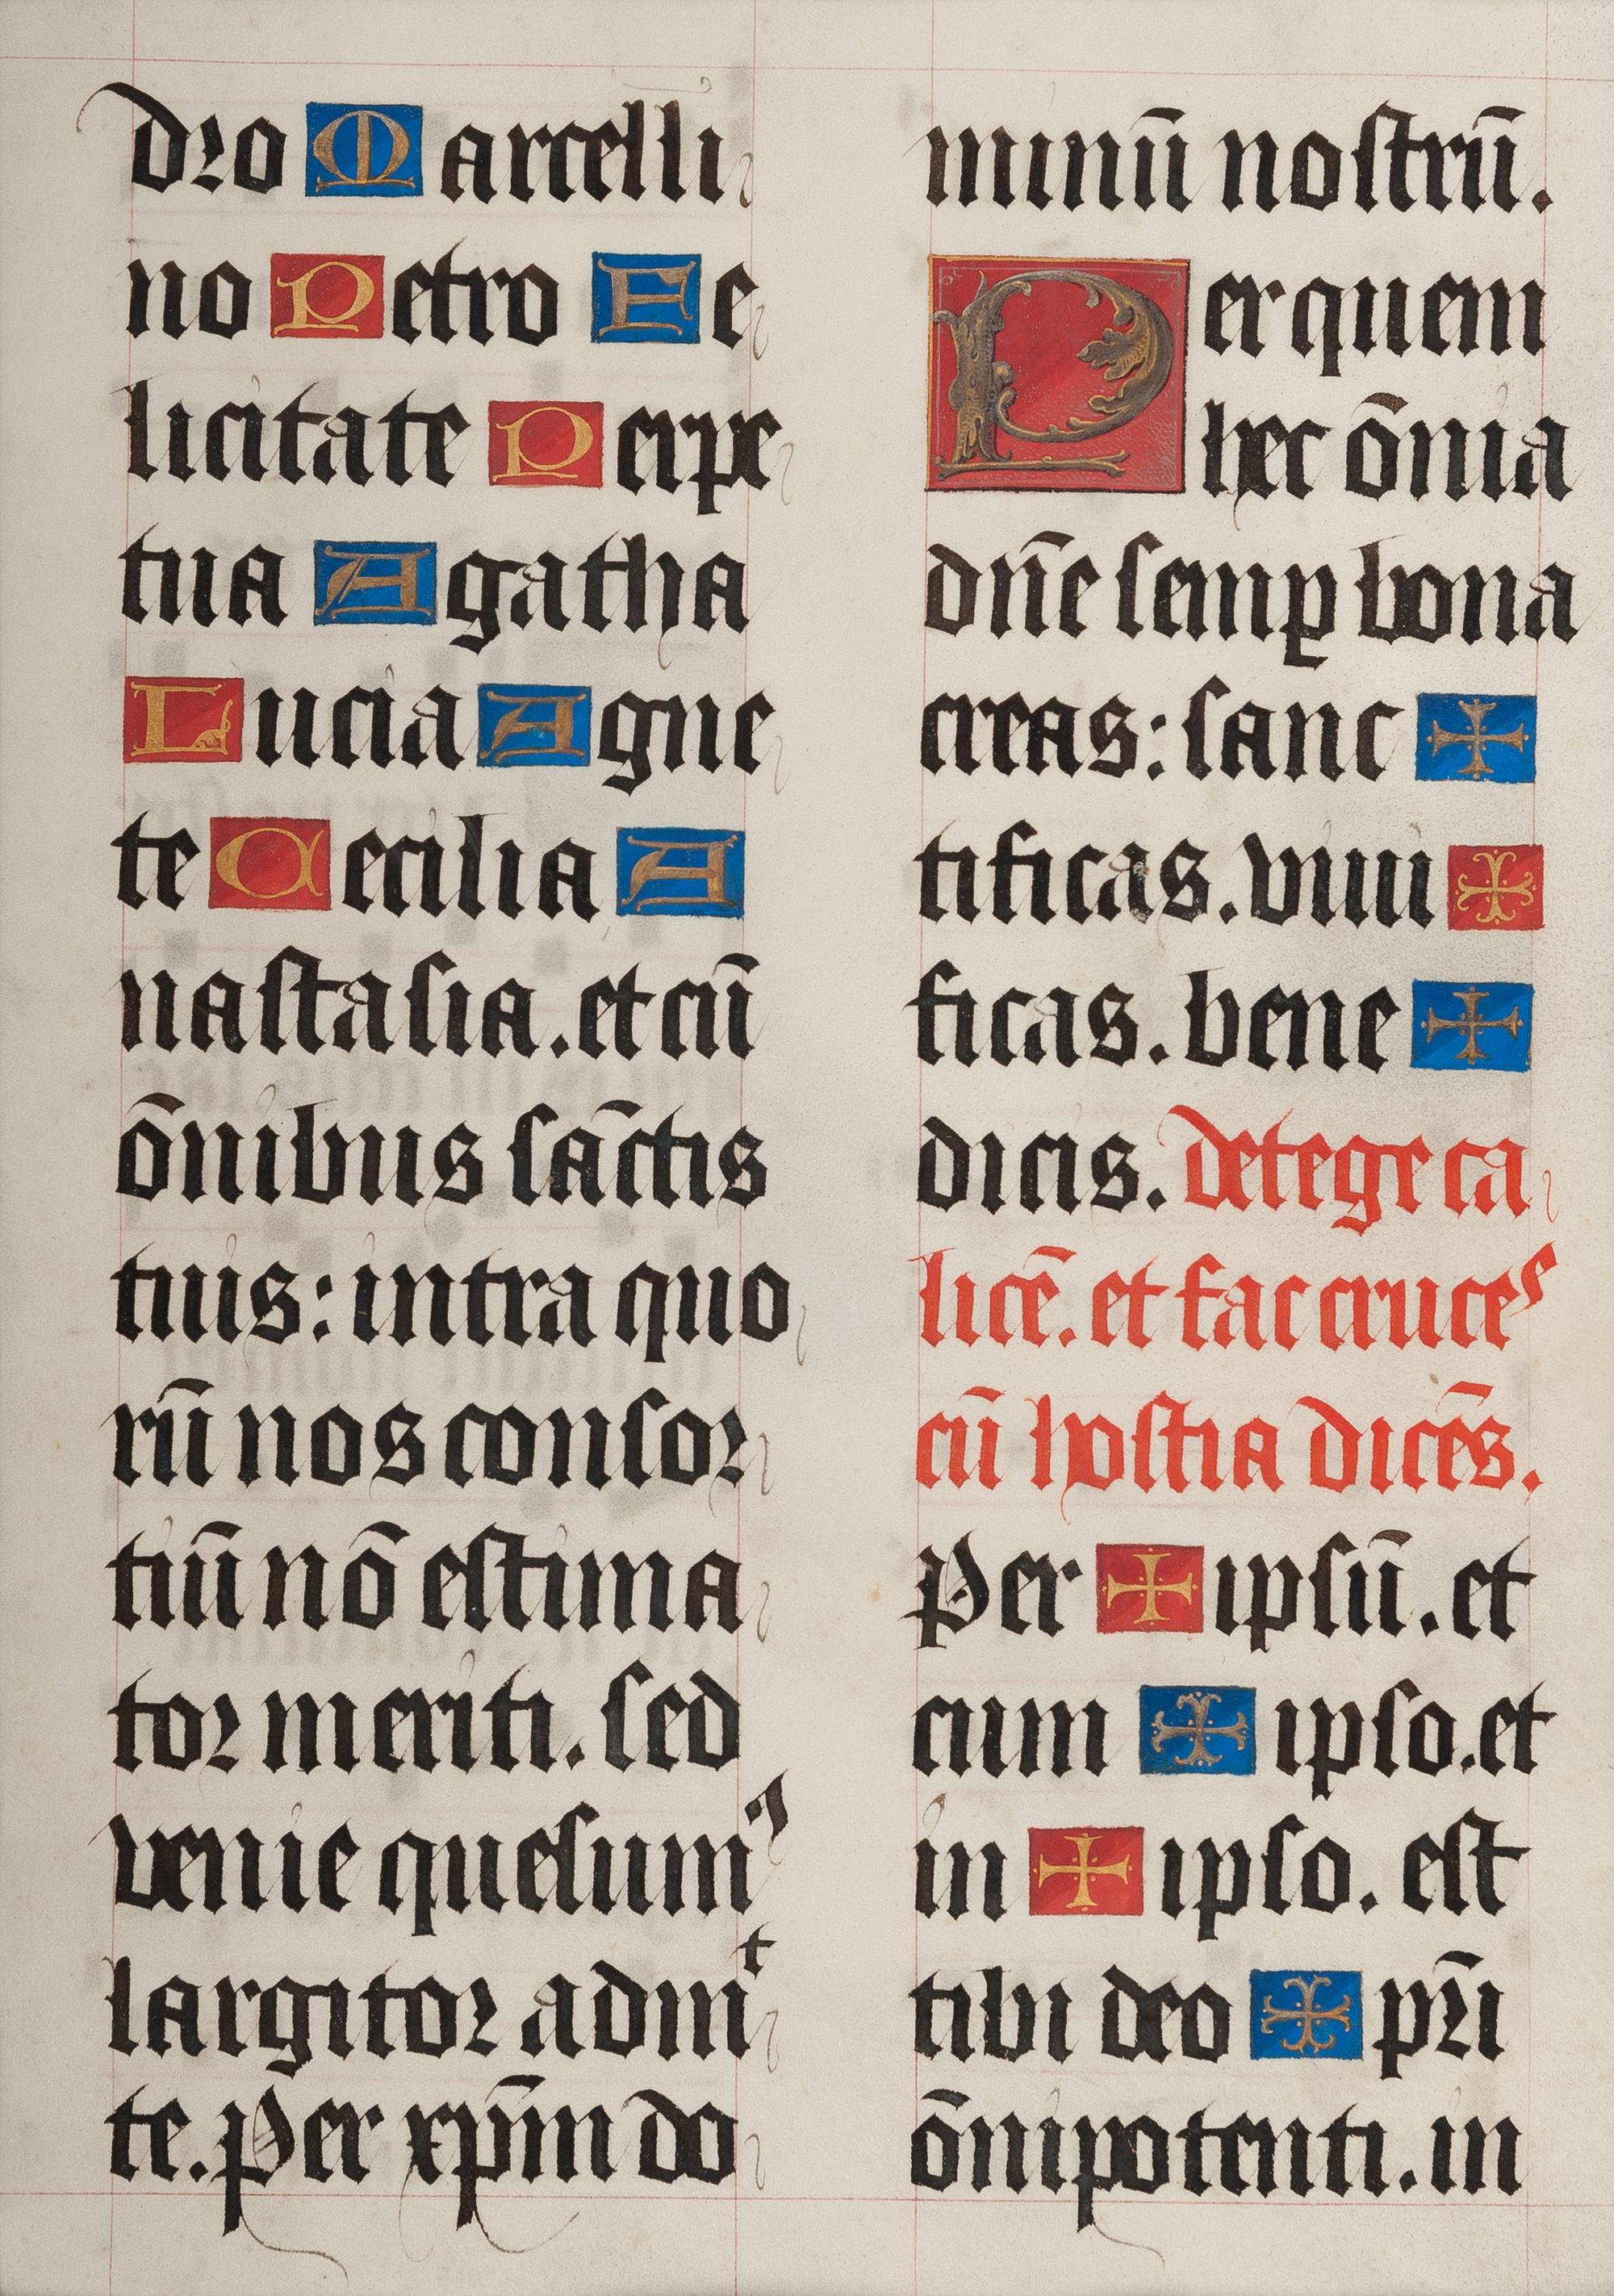 dro Marcelli
no Petro Fe
licitate Perpe
tua Agatha
Lucia Agne
te Cecilia A
nastasia. et cū
ōnibus sāctis
tuis: intra quo
rū nos consor
tiū nō estima
tor meriti. sed
venie quesumꝰ
largitor admit
te. Per xp̄m do
minū nostrū.
Per quem
hec ōnia
dn̄e semꝑ bona
creas: sanc ✠
tificas. vivi ✠
ficas. bene ✠
dicis. detege ca
licē. et fac cruces
cū hostia dicēs.
Per ✠ ipsū. et
cum ✠ ipso. et
in ✠ ipso. est
tibi deo ✠ pr̄i
ōnipotenti. in